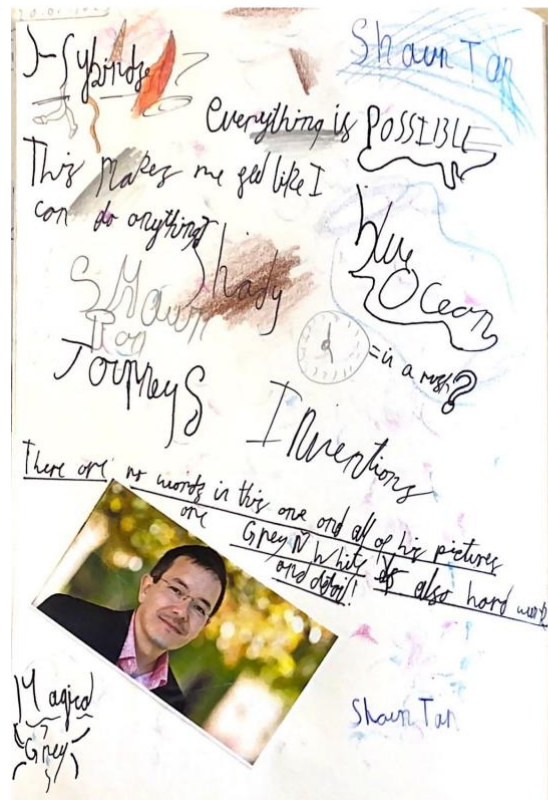 Shaun Tan
Everything is POSSIBLE
This makes me feel like I
can do anything
Shady
blue
Ocean
Shaun
Tan
= in a rush?
Journeys
Inventions
There are no words in this one and all of his pictures
are Grey N White also hard work
and detail!
Magical
Grey
Shaun Tan